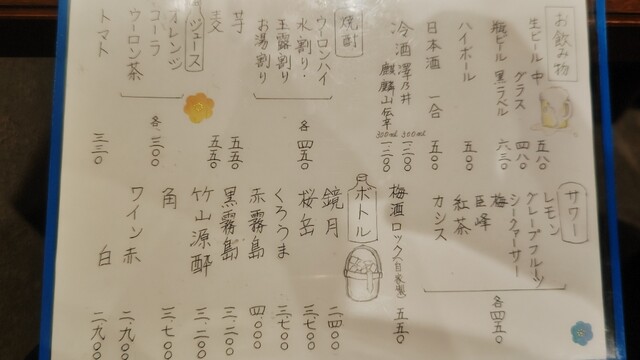 お飲み物
生ビール 中 五八〇
グラス 四八〇
瓶ビール 黒ラベル 六三〇
ハイボール 五〇〇
日本酒 一合 五〇〇
冷酒 澤乃井 300ml 一二〇〇
麒麟山伝辛 300ml 一二〇〇
焼酎
ウーロンハイ
水割り・
玉露割り
お湯割り
各 四五〇
芋 五五〇
麦 五五〇
ジュース
オレンジ
コーラ
ウーロン茶
各 三〇〇
トマト 三三〇
サワー
レモン
グレープフルーツ
シークァーサー
梅
巨峰
紅茶
カシス
各 四五〇
梅酒ロック(自家製) 五五〇
ボトル
鏡月 二四〇〇
桜岳 三、七〇〇
くろうま 三、七〇〇
赤霧島 四、〇〇〇
黒霧島 三、二〇〇
竹山源酔 三、二〇〇
角 三、七〇〇
ワイン 赤 二、九〇〇
白 二、九〇〇